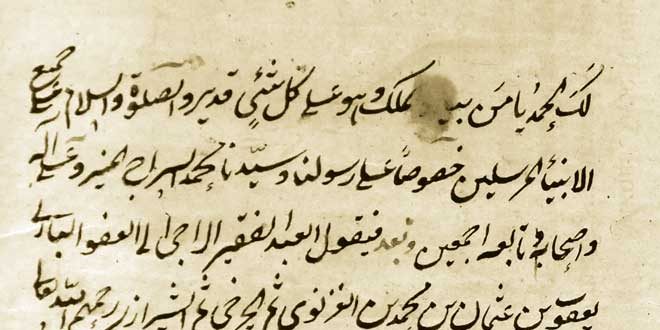 لَكَ الحمدُ يا مَن بيد الملك وهو علے كل شئٍ قدير والصلوة والسلام علے جميع
الانبيأ المرسلين خصوصاً علے رسولنا و سيّدنا محمد السراج المنير و علے آله
و اصحابه و تابعه اجمعين وبعد فيقول العبد الفقير الراجي الے العفو الباري
يعقوب بن عثمان بن محمد بن الغزنوي ثم الچرخي ثم الشيرازي رحمهم الله تعالے